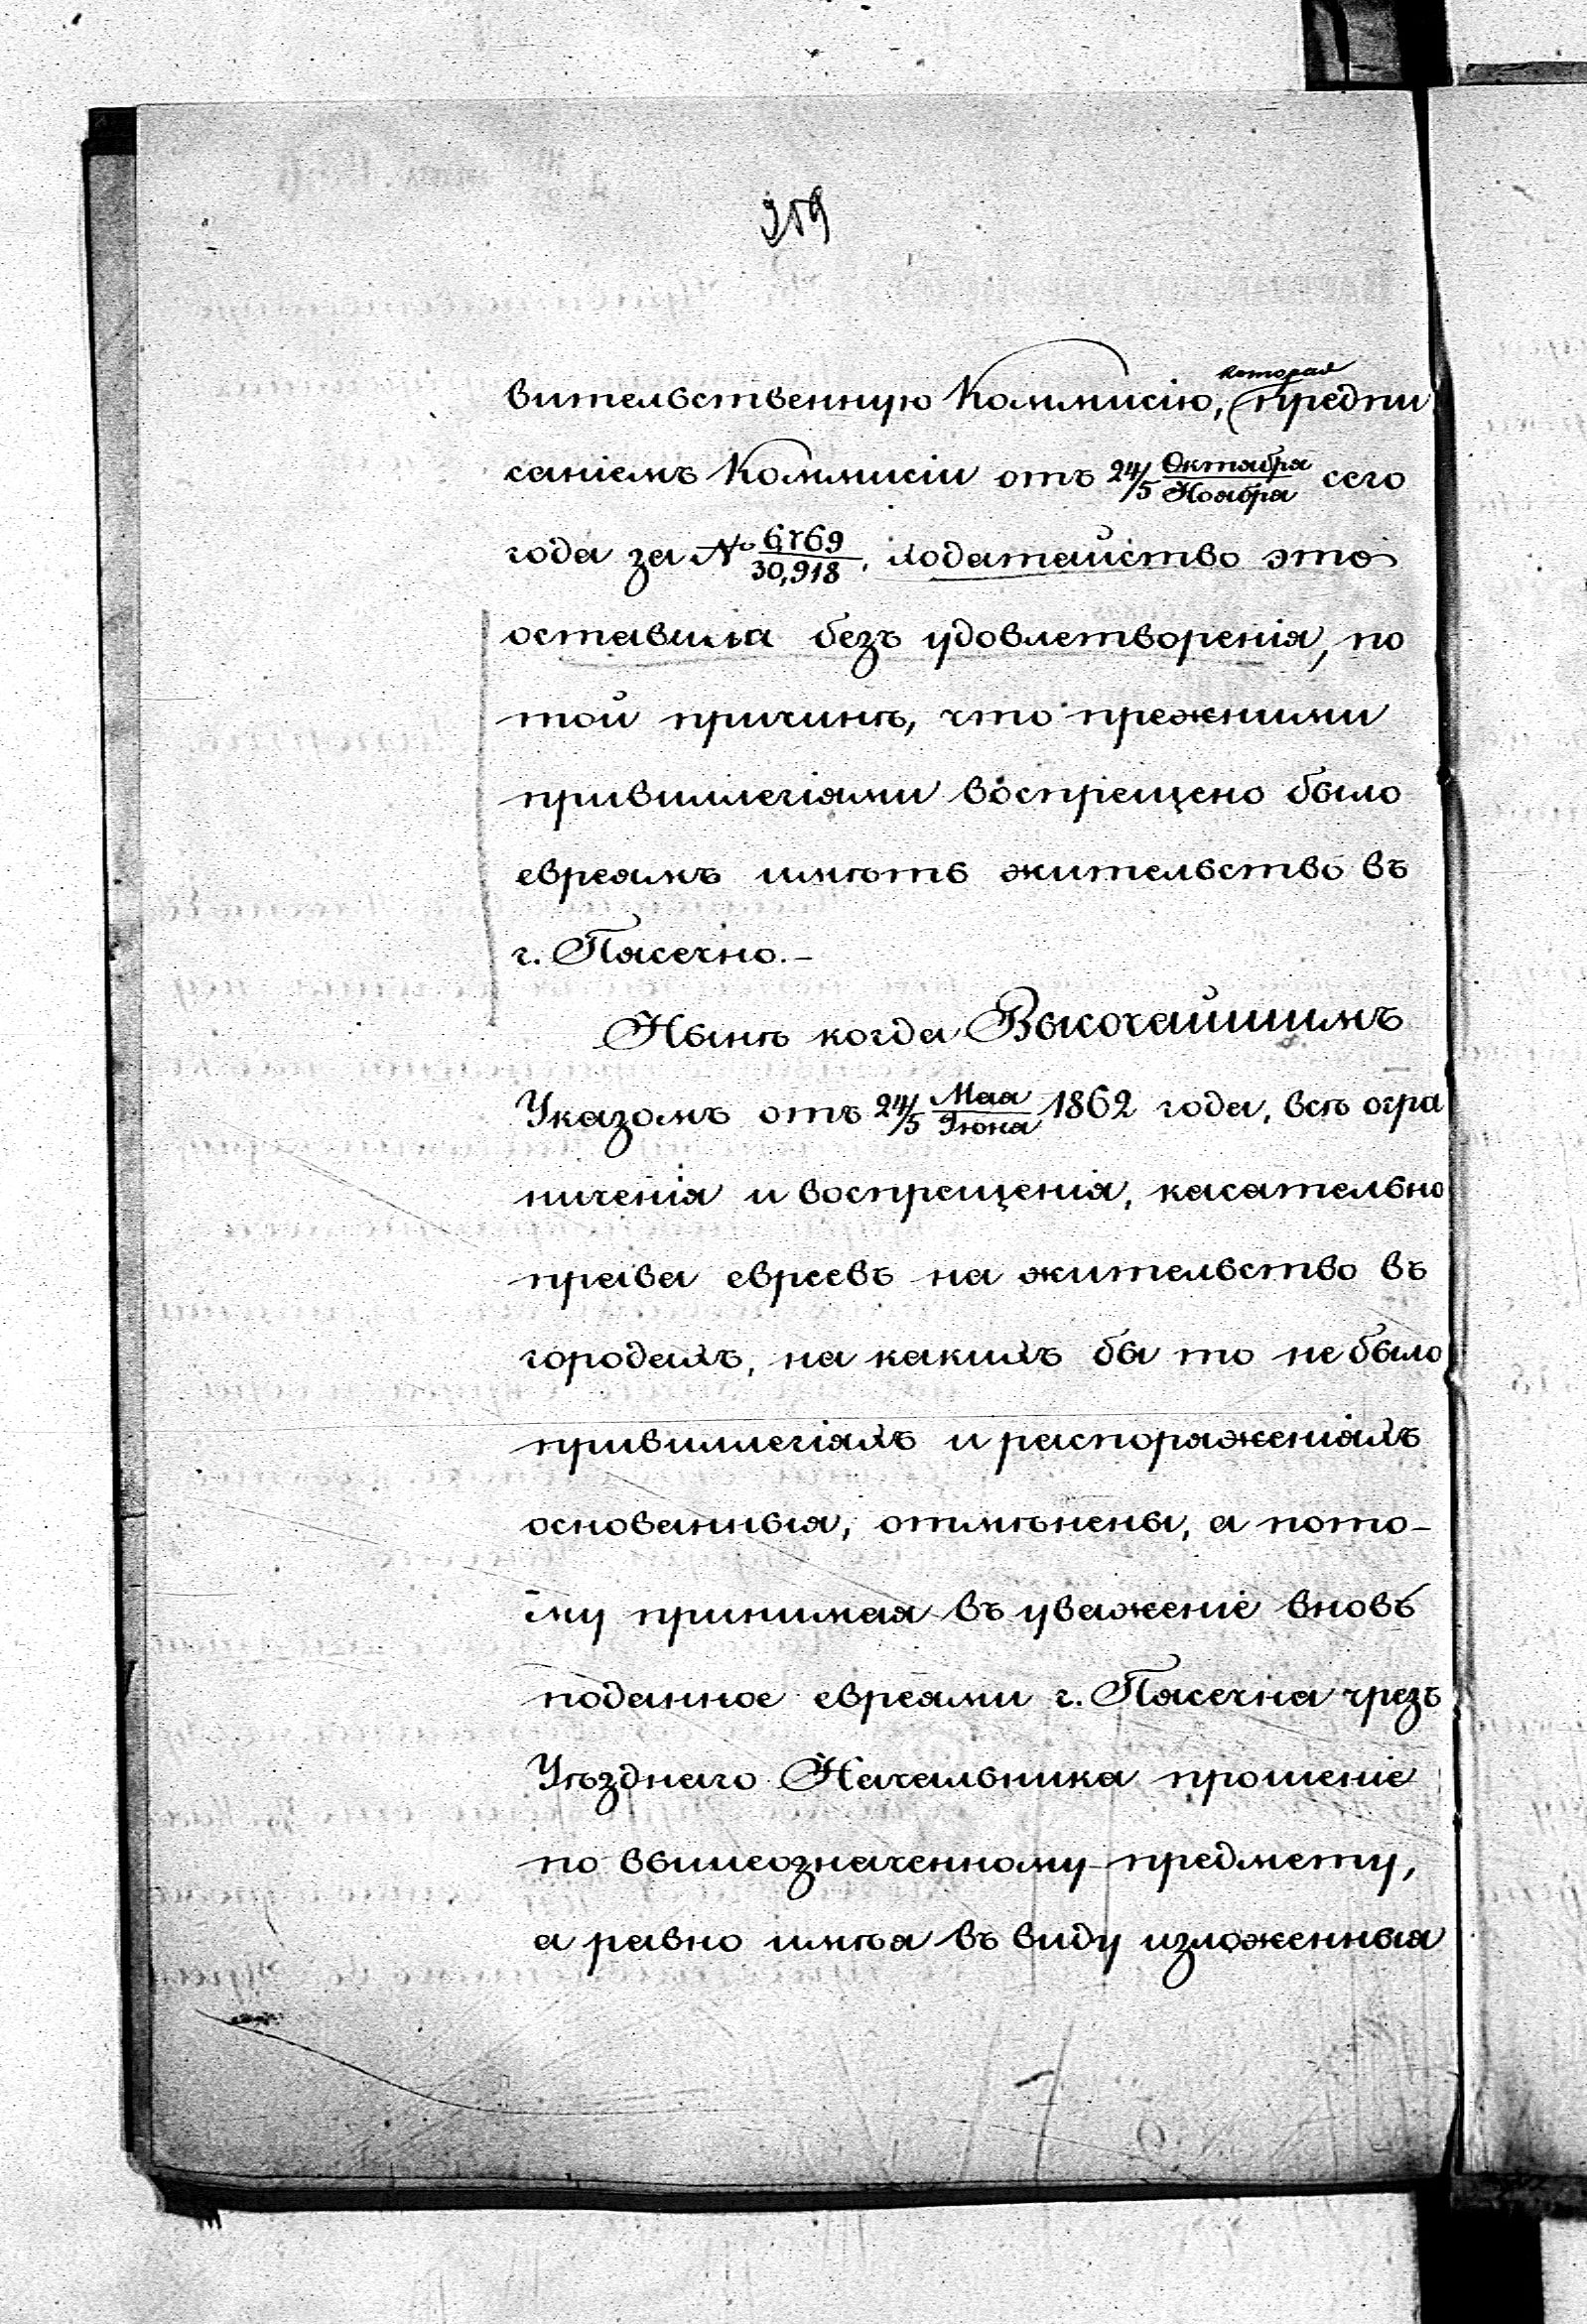 959
которая
вительственную Коммисію, предпи
саніемъ Коммисіи отъ 24/5 Октября/Ноября сего
года за № 6769/30,918, ходатайство это
оставила безъ удовлетворенія, по
той причинѣ, что прежними
привиллегіями воспрещено было
евреямъ имѣть жительство въ
г. Пясечно.-
Нынѣ когда Высочайшимъ
Указомъ отъ 24/5 Мая/Іюня 1862 года, всѣ огра
ниченія и воспрещенія, касательно
права евреевъ на жительство въ
городахъ, на какихъ бы то не было
привиллегіяхъ и распоряженіяхъ
основанныя, отмѣнены, а пото-
му принимая въ уваженіе вновь
поданное евреями г. Пясечна чрезъ
Уѣзднаго Начальника прошеніе
по вышеозначенному предмету,
а равно имѣя въ виду изложенныя